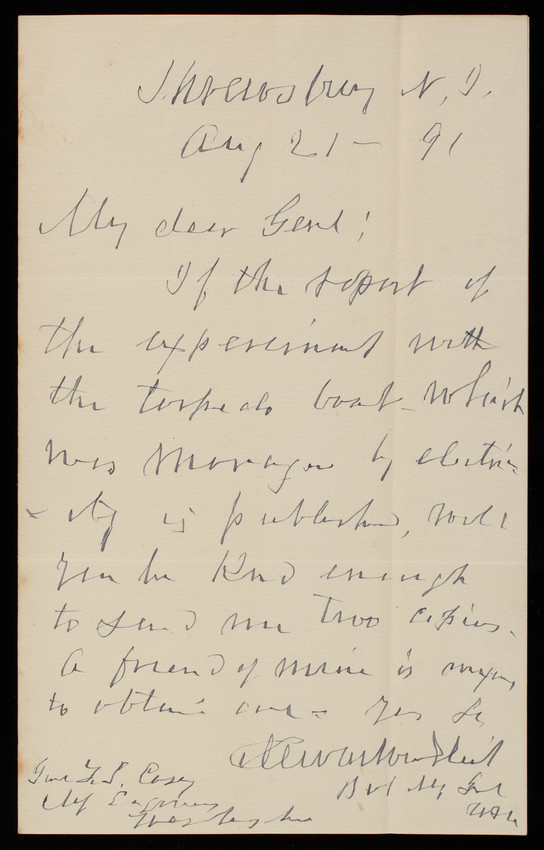 Shrewsbury N.J.
Aug 21 - 91
My dear Genl;
If the report of
the experiment with
the torpedo boat - which
was managed by electric-
- ity is published, will
you be kind enough
to send me two copies.
A friend of mine is
to obtain one -
Genl T. L. Casey
Chf Engineers
Washington
Bvt Maj Genl
USA